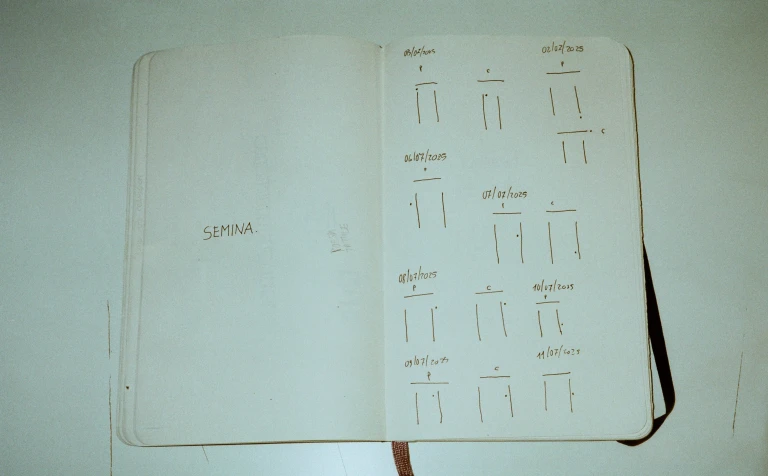 SEMINA.
02/07/2025
P
C
P
C
06/07/2025
P
07/07/2025
P
C
08/07/2025
P
C
10/07/2025
P
09/07/2025
P
C
11/07/2025